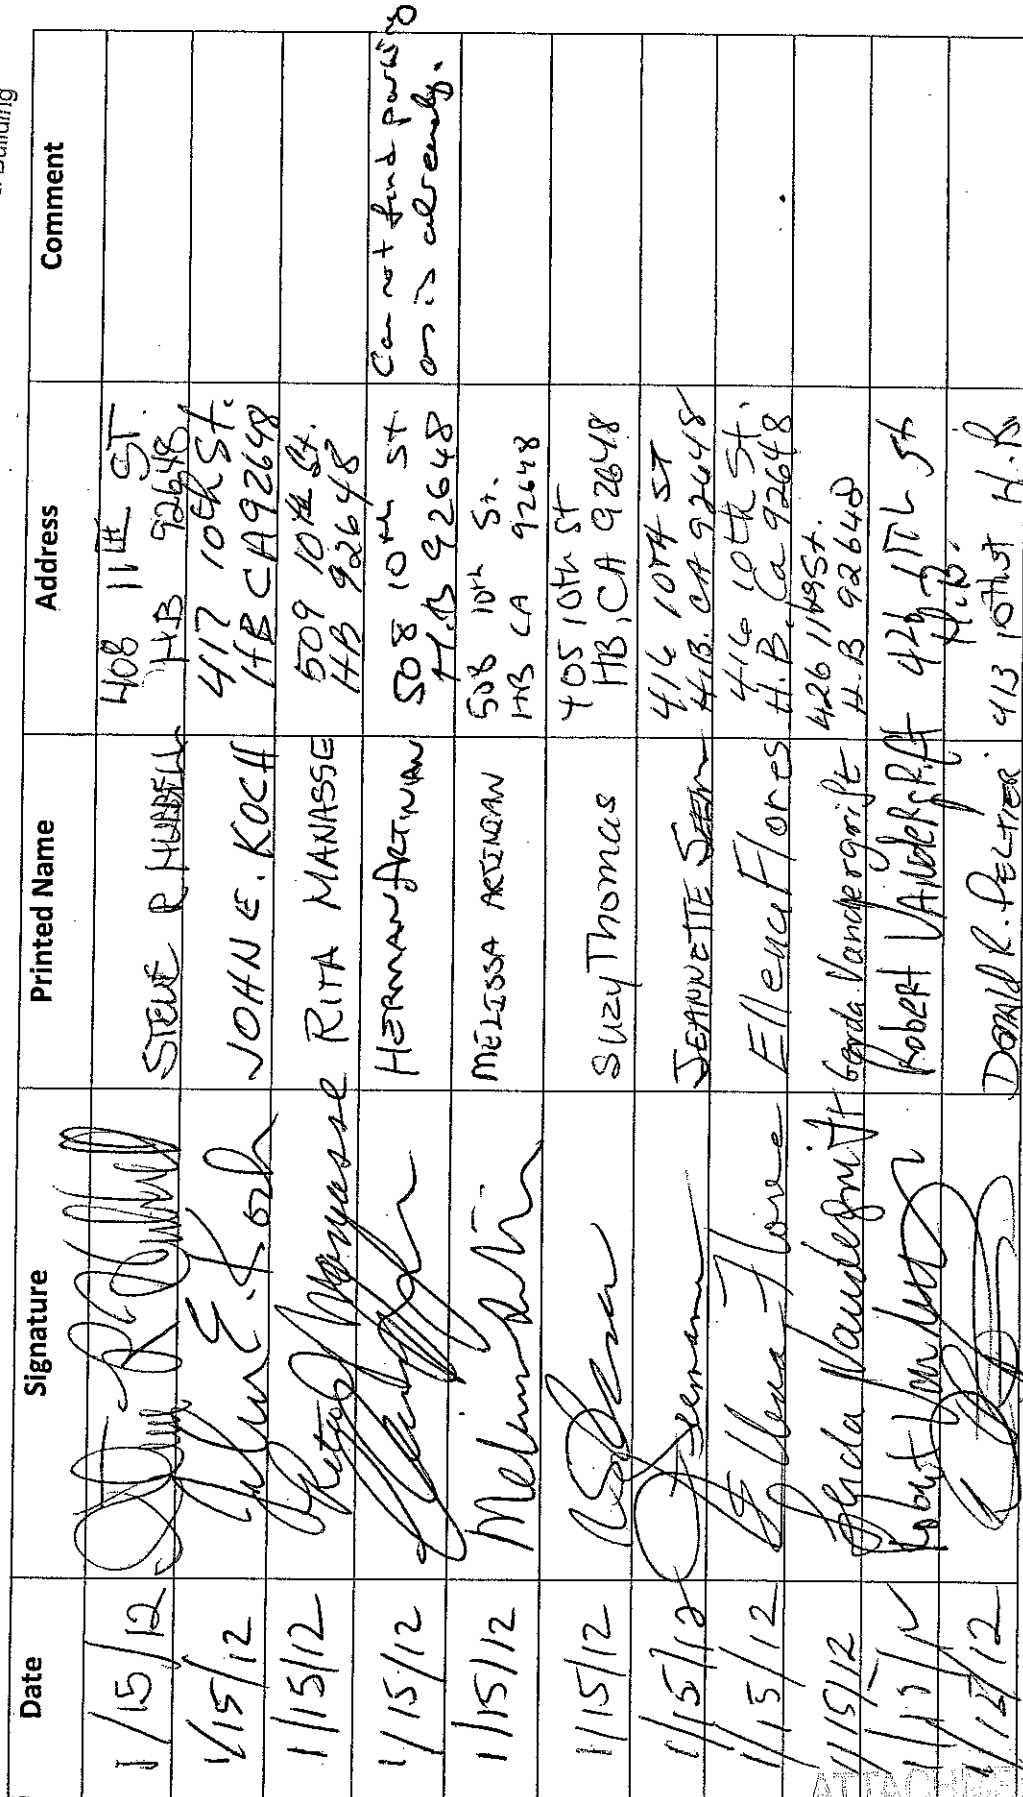 Building
Date Signature Printed Name Address Comment
1/15/12 STEVE R HUBBELL 408 11TH ST.
HB 92648
1/15/12 John E. Koch JOHN E. KOCH 417 10th St.
HB CA 92648
1/15/12 Rita Manasse RITA MANASSE 509 10th St.
HB 92648
1/15/12 HERMAN ARTINIAN 508 10th St Can not find parking
H.B 92648 as is already.
1/15/12 MELISSA ARTINIAN 508 10th St.
HB CA 92648
1/15/12 Suzy Thomas 405 10th St
HB, CA 92648
1/15/12 JEANNETTE 416 10TH ST
H.B. CA 92648
1/15/12 Ellena Flores 416 10th St.
H.B. Ca 92648
1/15/12 Gerda Vandergrift 426 11th St.
H.B 92648
1/15/12 Robert VANdeRgRift 426 11TL St
H.B.
1/15/12 DONALD R. PELTIER 413 10th St H.B